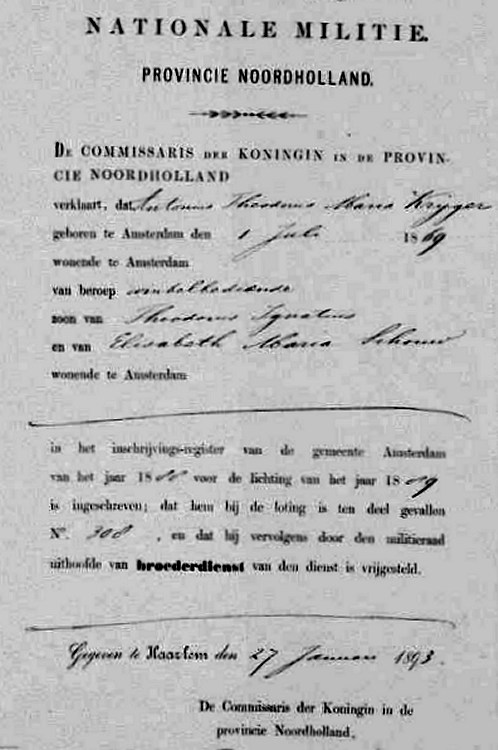 NATIONALE MILITIE.
PROVINCIE NOORDHOLLAND.
DE COMMISSARIS DER KONINGIN IN DE PROVIN-
CIE NOORDHOLLAND
verklaart, dat Antonius Theodorus Maria Krijger
geboren te Amsterdam den 1 Juli 1869
wonende te Amsterdam
van beroep winkelbediende
zoon van Theodorus Ignatius
en van Elisabeth Maria Schouw
wonende te Amsterdam
in het inschrijvings-register van de gemeente Amsterdam
van het jaar 1888 voor de lichting van het jaar 1889
is ingeschreven; dat hem bij de loting is ten deel gevallen
No. 308, en dat hij vervolgens door den militieraad
uithoofde van broederdienst van den dienst is vrijgesteld.
Gegeven te Haarlem den 27 Januari 1893.
De Commissaris der Koningin in de
provincie Noordholland,